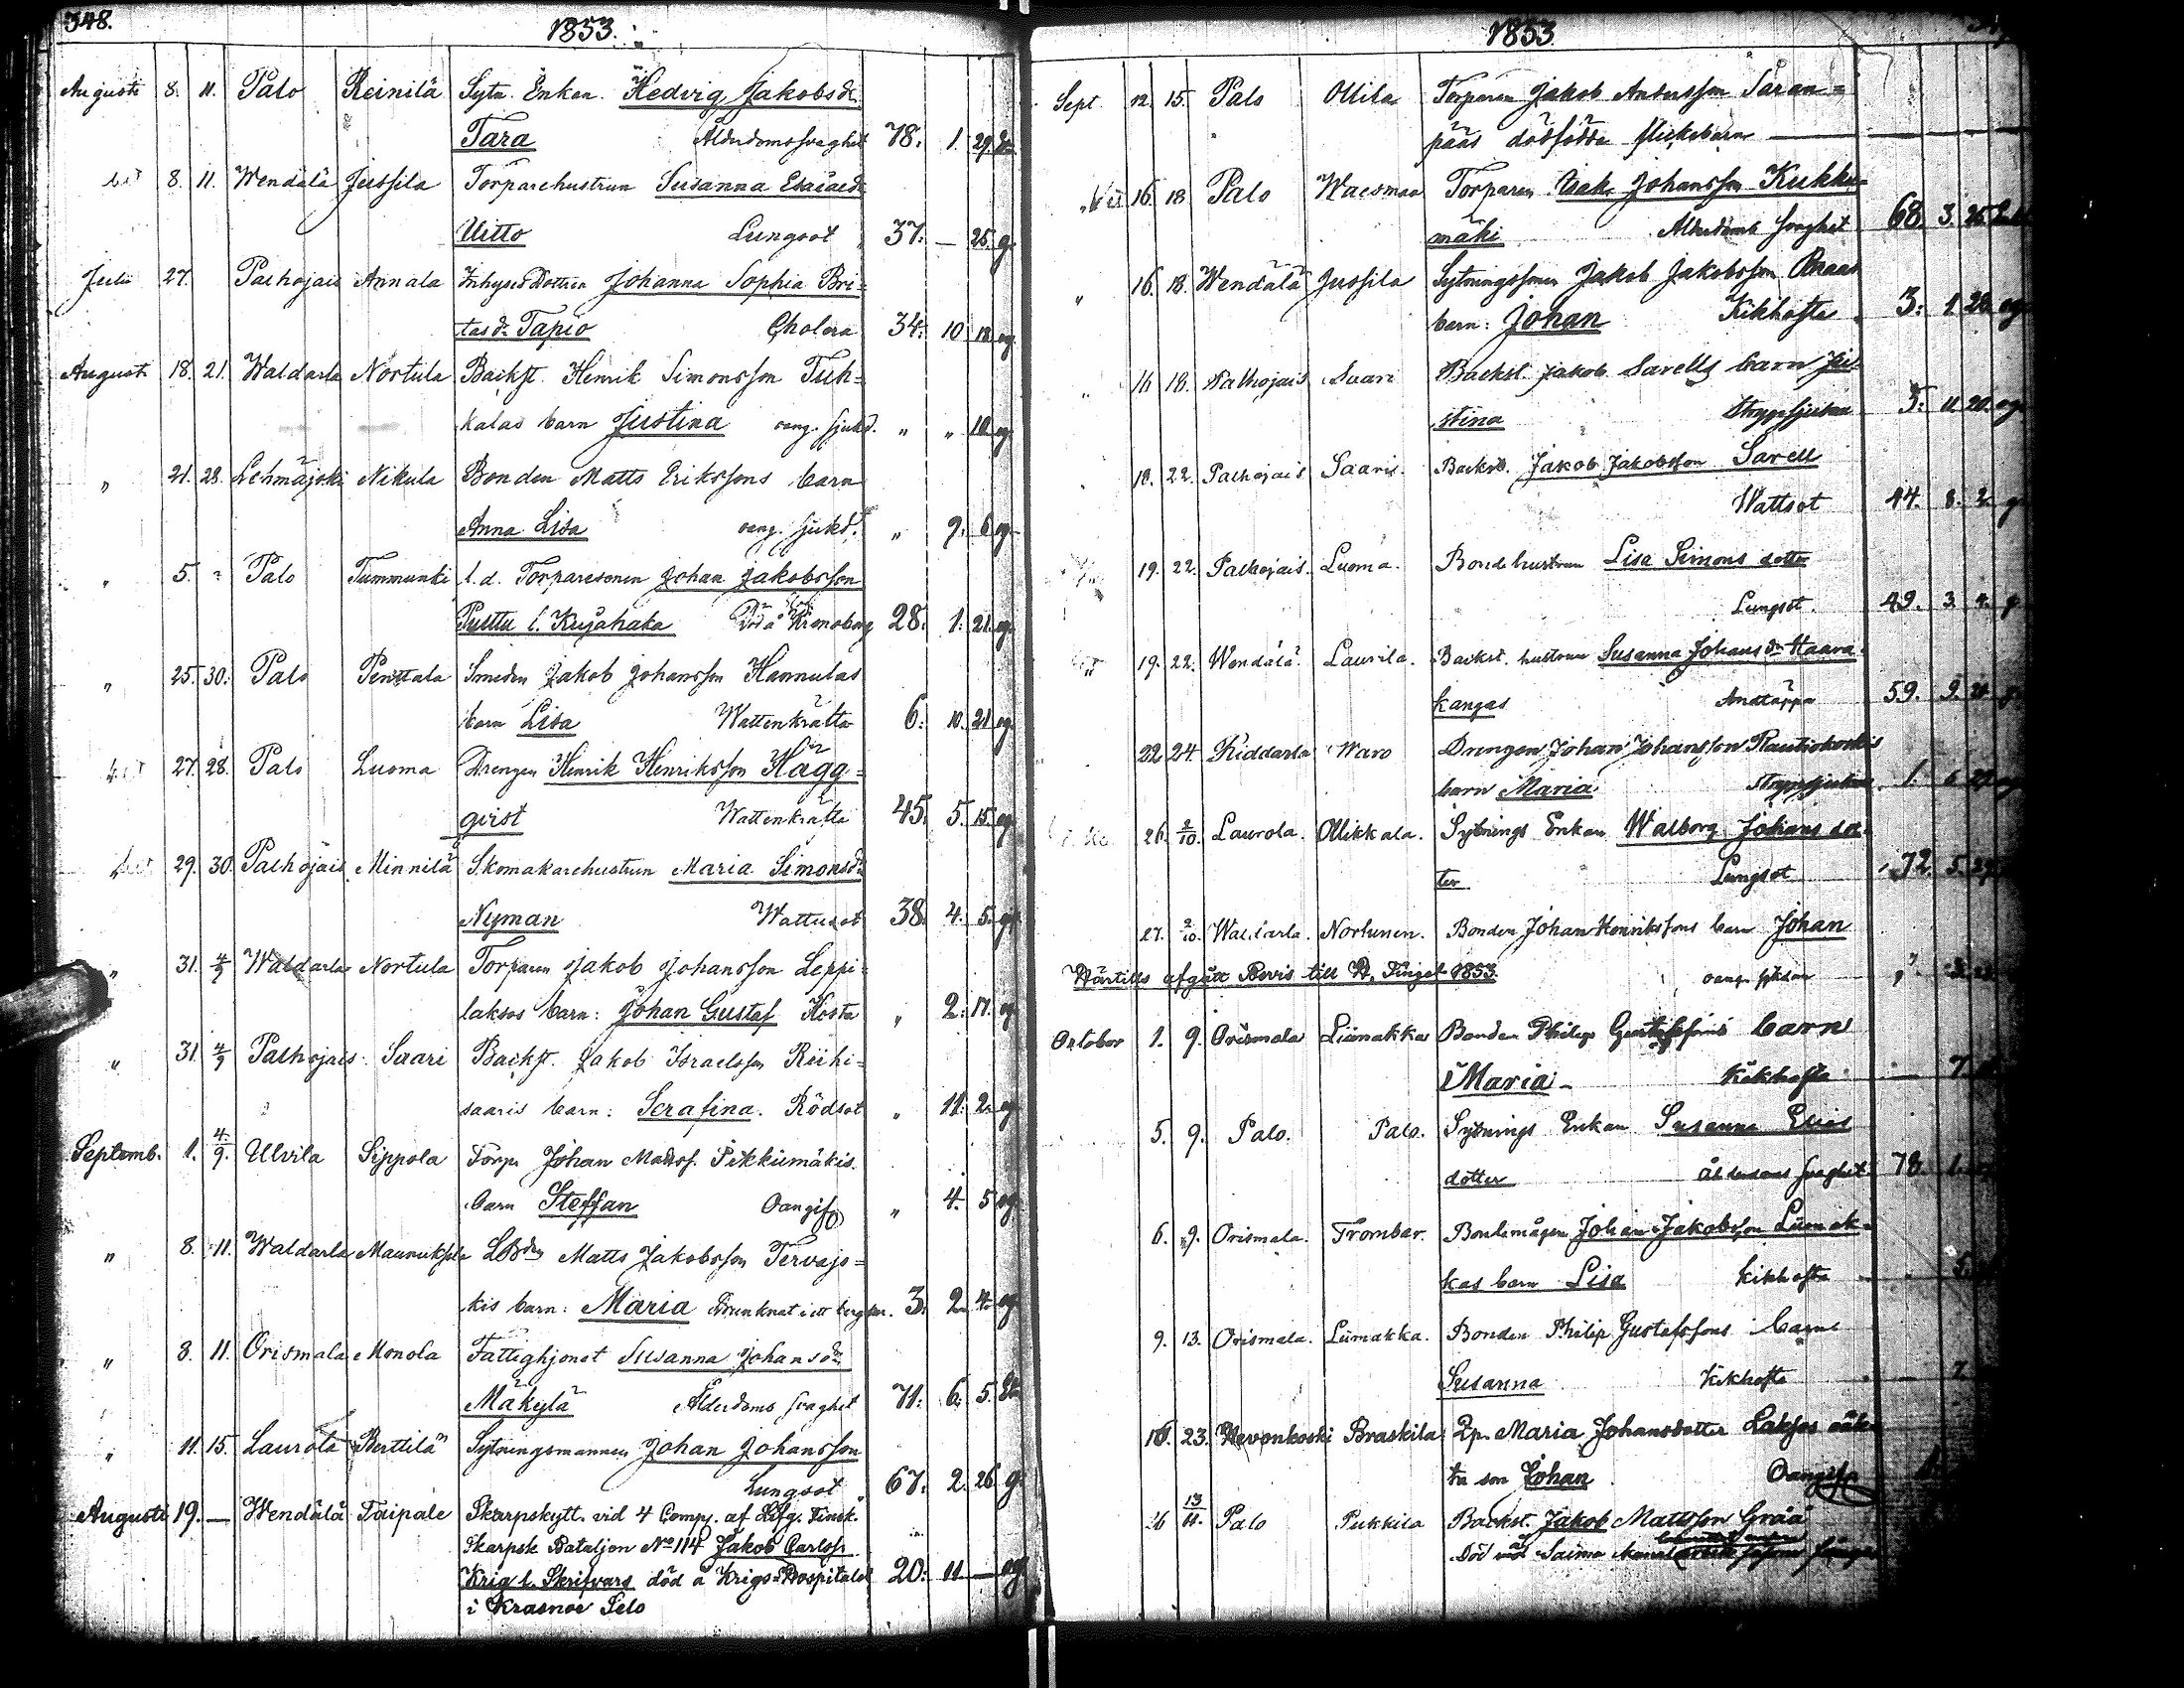 348.
1853.
Augusti 8. 11. Palo Reinilä Sytn. Enkan Hedvig Jakobsdr
Tara Ålderdomssvaghet 78. 1. 29.
8. 11. Wendälä Jussila Torparehustrun Susanna Esaiaedr
Uitto Lungsot 37. — 25. g.
Julii 27. Palhojais Annala Inhyses Dottren Johanna Sophia Bri=
tasdr Tapio Cholera 34. 10 18 og.
Augusti 18. 21. Waldarla Nortula Backst. Henrik Simonsson Tuh=
kalas barn Justina oang. sjukd. " " 10 og
" 21. 28. Lehmäjoki Nikula Bonden Matts Erikssons barn
Anna Lisa oang. sjukd. " 9. 6 og
" 5. " Palo Tummunki l. d. Torparesonen Johan Jakobsson
Puttu l. Kujahaka Död å Kronoborg 28. 1. 21. og.
" 25. 30. Palo Penttala Smeden Jakob Johansson Hannulas
barn Lisa Wattenkräfta 6. 10. 21 og
27. 28. Palo Luoma Drengen Henrik Henriksson Hägg=
qvist Wattenkräfta 45. 5. 15. og
29. 30. Palhojais Minnilä Skomakarehustrun Maria Simonsdr
Nyman Wattusot 38. 4. 5. gf
" 31. 4/9 Waldarla Nortula Torparen Jakob Johansson Leppi=
laksos barn: Johan Gustaf Hosta " 2. 17. og
" 31. 4/9 Palhojais Saari Backst. Jakob Israelsson Riihi=
saaris barn: Serafina. Rödsot " 11. 2. og
Septemb. 1. 4/9. Ulvila Sippola Torp. Johan Matss. Pikkumäkis
barn Steffan Oangifv " 4. 5 og
" 8. 11. Waldarla Maunuksela LBdn Matts Jakobsson Tervajo=
kis barn: Maria Drunknat i ett 3. 2. 4. og
" 8. 11. Orismala Monola Fattighjonet Susanna Johansdr
Mäkylä Ålderdoms svaghet 71. 6. 5.
" 11. 15. Laurola Berttilä Sytningsmannen Johan Johansson
Lungsot 67. 2. 26 g
Augusti 19. — Wendälä Taipale Skarpskytt. vid 4 Comp. af Lifg. Finsk.
Skarpsk Bataljon No 114 Jakob Carlss.
Krig l. Skrifvars död å Krigs=Hospitalet 20. 11 — og
i Krasnoe Selo
1853
Sept. 12. 15. Palo Ollila Torparen Jakob Anderssson Saran=
pääs dödfödda flickebarn —
16. 18 Palo Waesmaa Torparen Isak Johansson Kukku=
mäki Ålderdoms svaghet 68. 3. 25
" 16. 18. Wendälä Jussila Sytningssonen Jakob Jakobsson
barn: Johan Kikhosta 3. 1 28. og
" 16 18. Palhojais Saari Backst. Jakob Sarells barn Ju=
stina Strypsjukan 3. 11 20. og
18. 22. Palhojais Saari. Backst. Jakob Jakobsson Sarell
Wattsot 44. 8. 2. g
19. 22. Palhojais. Luoma. Bonde hustrun Lisa Simons dotter
Lungsot. 49. 3. 4. g
19. 22. Wendälä Laurila. Backst. hustrun Susanna Johansdr Haara=
kangas Andtäppa 59. 9.
22. 24. Riddarla Waro Drengen Johan Johansson Rautiokoskis
barn Maria Strypsjukan 1. 6
26. 2/10. Laurola. Ollikkala. Sytnings Enkan Walborg Johans dot=
ter Lungsot 72. 5. 29
27. 2/10. Waldarla. Nortunen. Bonden Johan Henrikssons barn Johan
Härtills afgått Bevis till H. Tinget 1853. oang. sjukdom "
October 1. 9. Orismala Liimakka Bonden Philip Gustafssons barn
Maria — Kikhosta — 7
5. 9. Palo. Palo. Sytnings Enkan Susanna Elias
dotter Ålderdoms svaghet 78. 1.
6. 9. Orismala. Trombar. Bondemågen Johan Jakobsson Liimak=
kas barn Lisa Kikhosta — 5.
9. 13. Orismala. Liimakka. Bonden Philip Gustafssons barn
Susanna Kikhosta — 7.
16. 23. Hevonkoski Braskila Qp. Maria Johansdotter Laksos oäk=
ta son Johan Oangifv
26 13/11. Palo Pukkila Backst. Jakob Mattsson Gråå
Död vid Saima Kanal